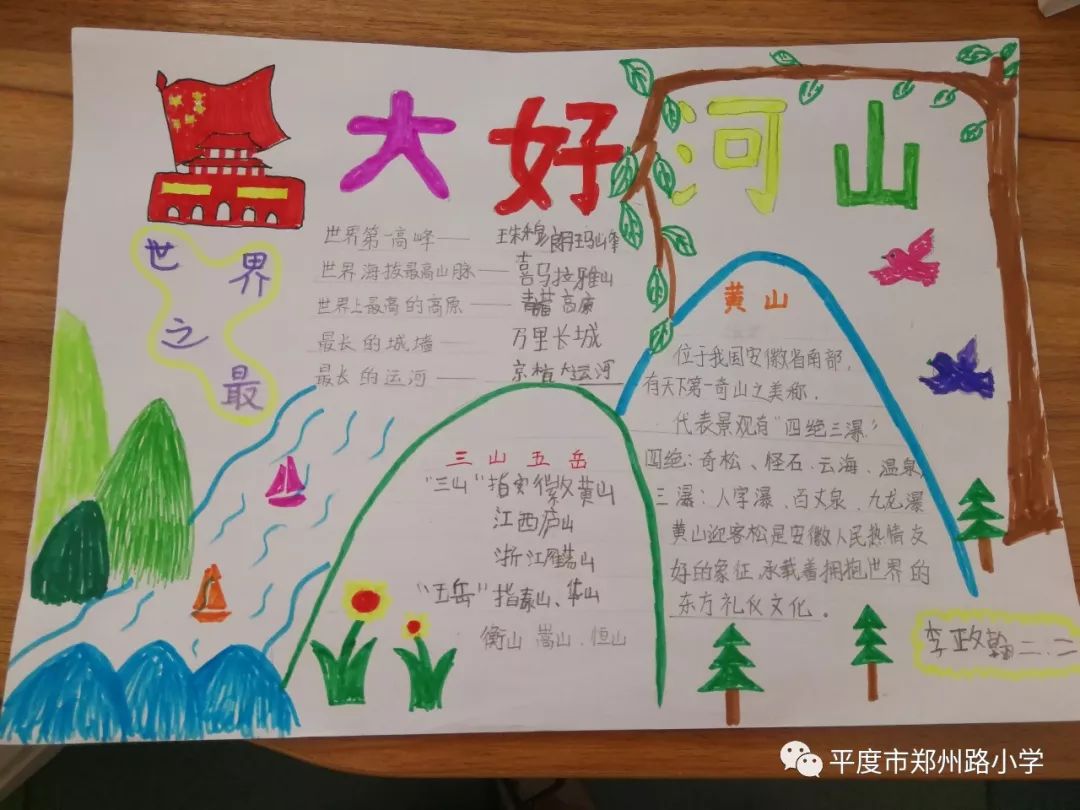 大好河山
世界之最
世界第一高峰—— 珠穆朗玛峰
世界海拔最高山脉—— 喜马拉雅山
世界上最高的高原—— 青藏高原
最长的城墙—— 万里长城
最长的运河—— 京杭大运河
三山五岳
"三山"指安徽黄山
江西庐山
浙江雁荡山
"五岳"指泰山、华山
衡山 嵩山、恒山
黄山
位于我国安徽省南部，
有天下第一奇山之美称．
代表景观有"四绝三瀑"
四绝：奇松、怪石、云海、温泉，
三瀑：人字瀑、百丈泉、九龙瀑
黄山迎客松是安徽人民热情友
好的象征，承载着拥抱世界的
东方礼仪文化．
李政翰二．二
平度市郑州路小学